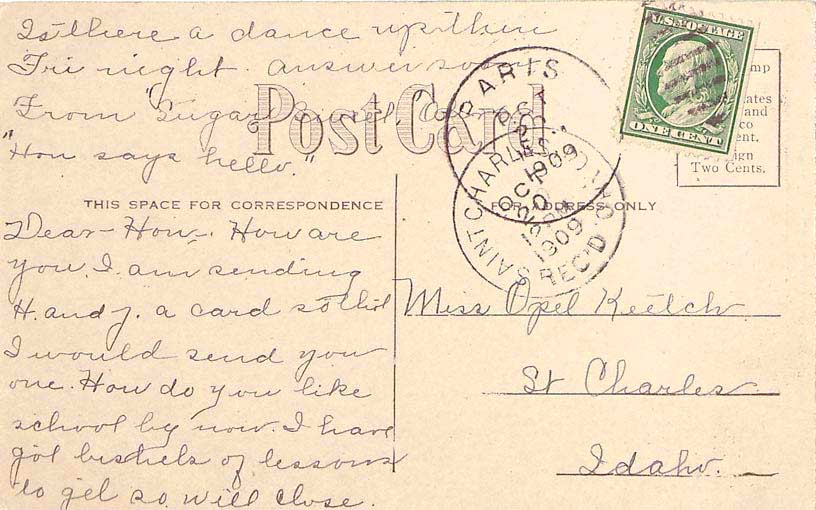 Is there a dance up there
Fri night. answer soon
From "Sugar
"Hon says hello."
Post Card
THIS SPACE FOR CORRESPONDENCE
FOR ADDRESS ONLY
Dear Hon. How are
you. I am sending
H. and J. a card so thot
I would send you
one. How do you like
school by now. I have
got bushels of lessons
to get so will close.
U.S. POSTAGE
ONE CENT
Two Cents.
PARIS
OCT
1909
SAINT CHARLES
OCT
20
1909
REC'D.
Miss Opel Keetch
St Charles
Idaho.